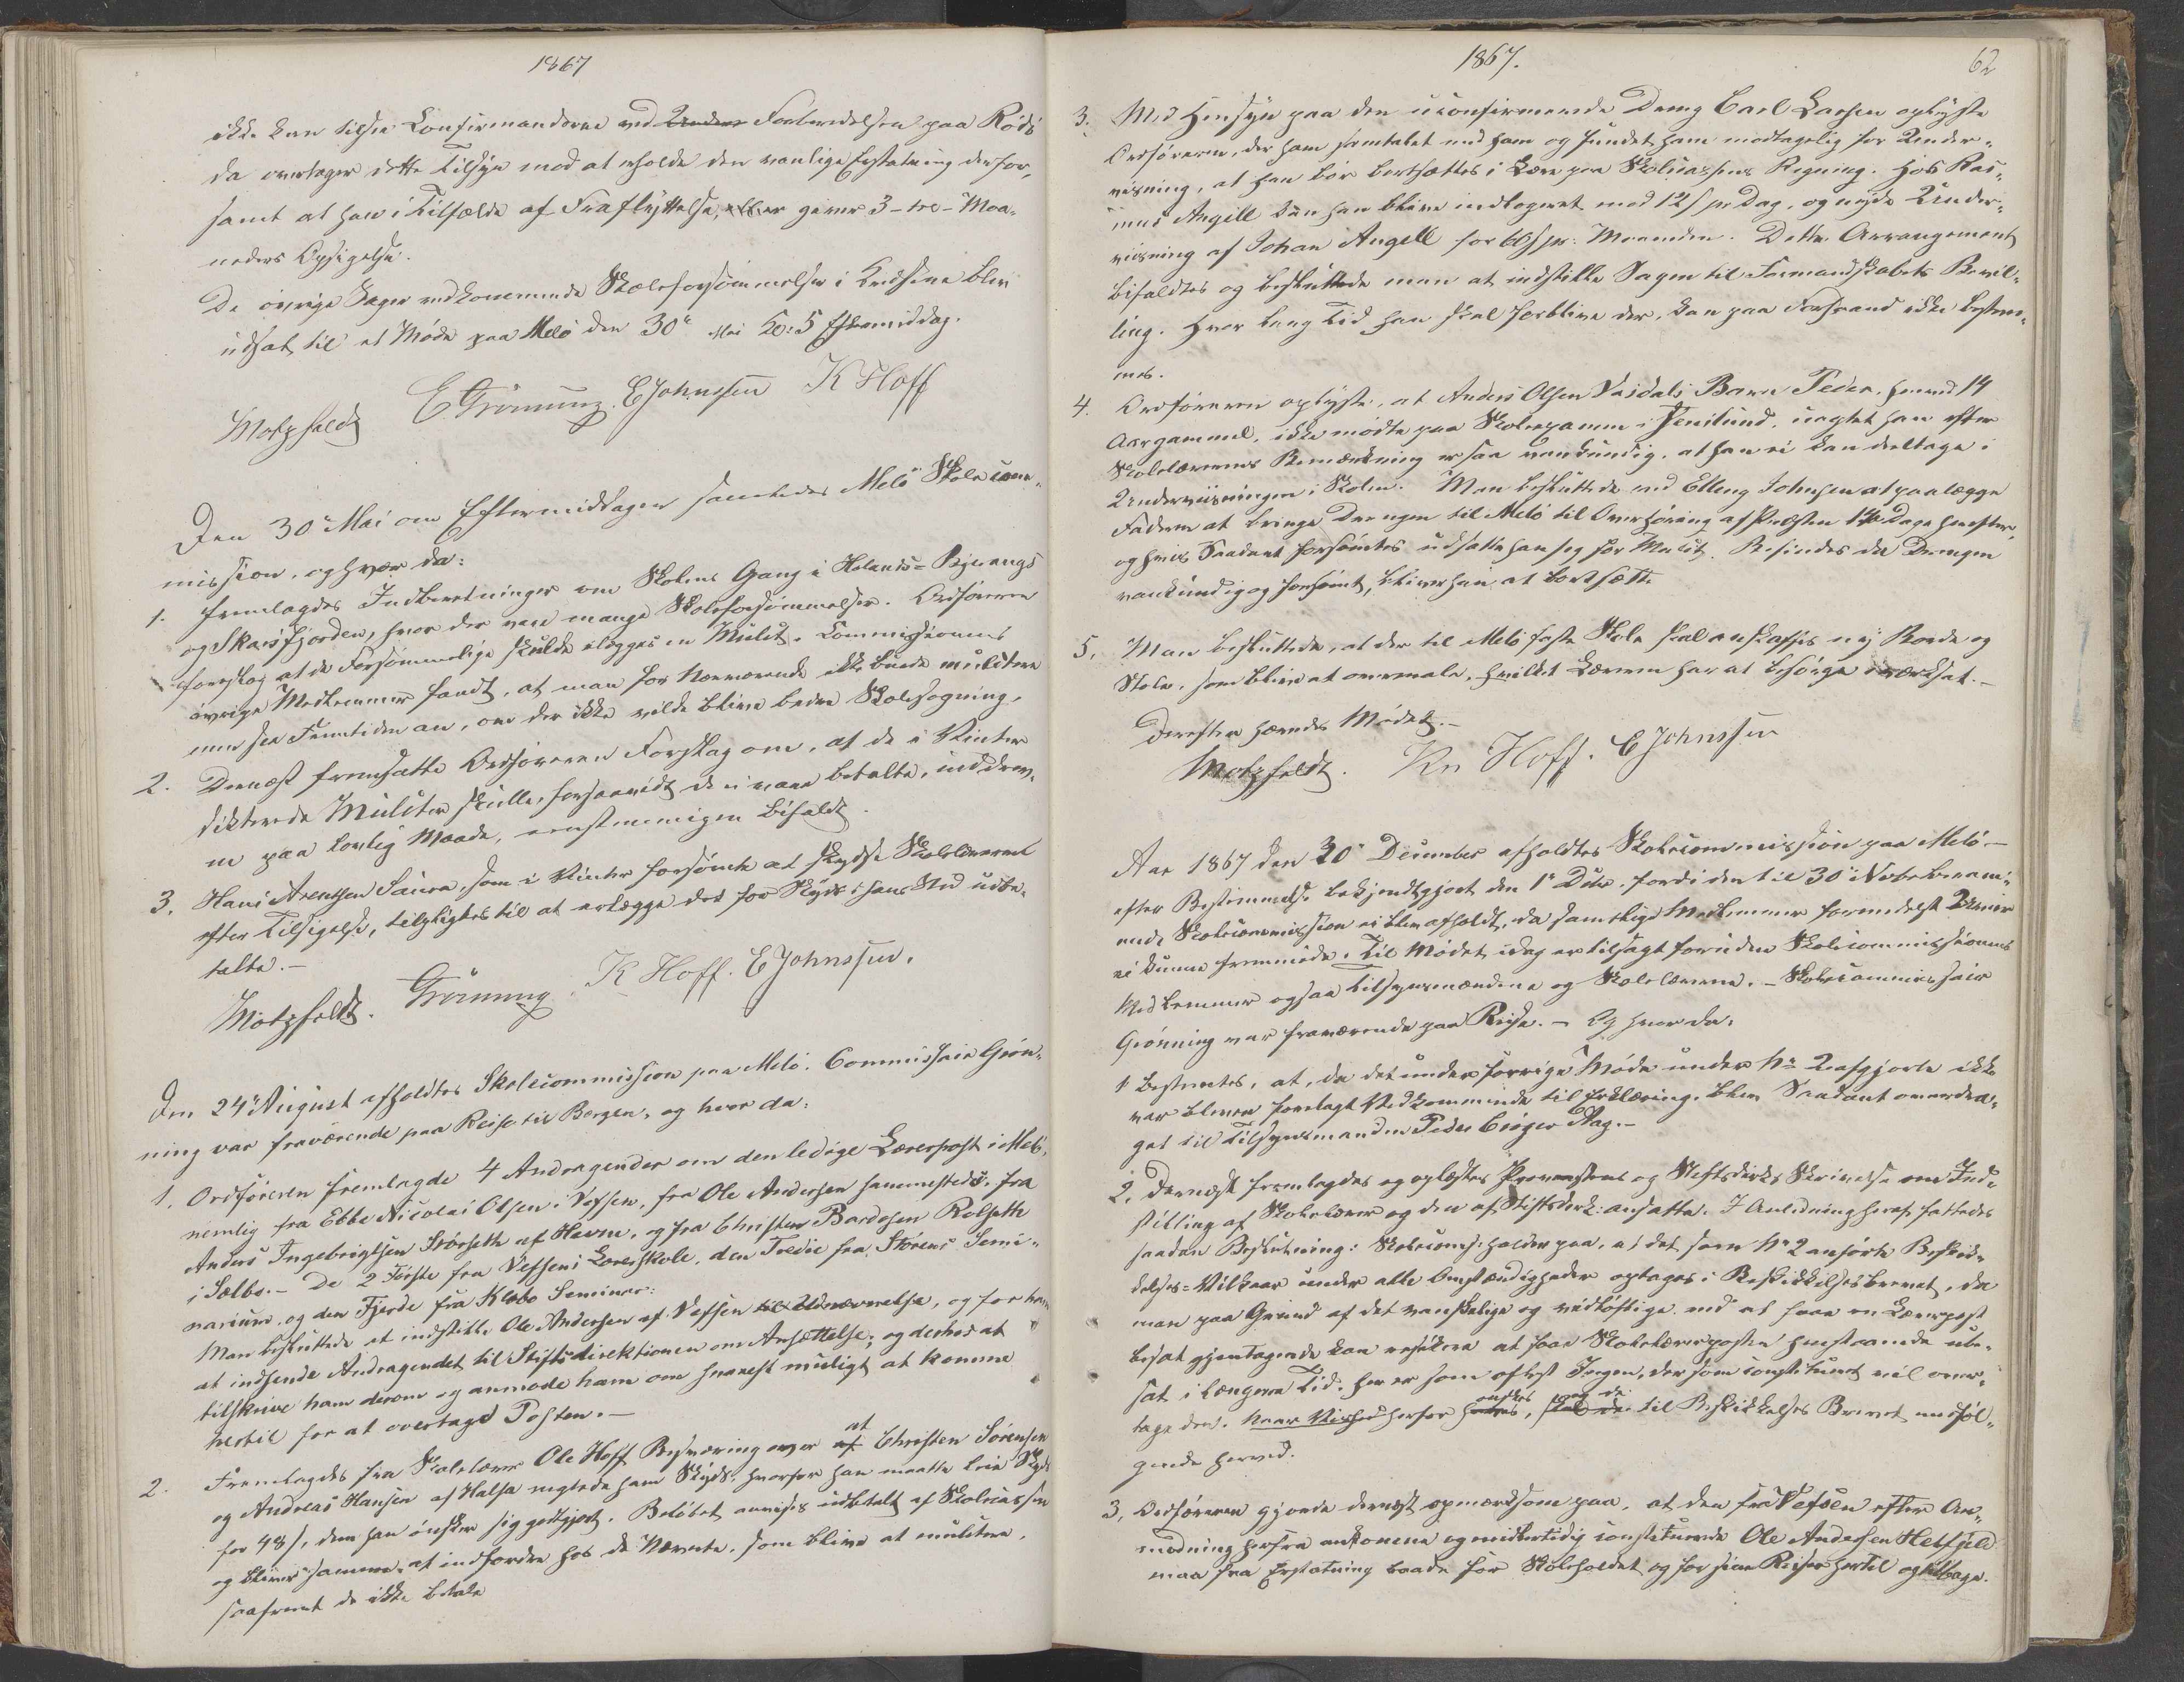 1867
ikke kan tilsee Konfirmanderne ved Forberedelsen paa Rödö
da overtager dette Tilsyn mod at erholde den vanlige Erstatning derfor,
samt at han i Tilfælde af Fraflyttelse, giver 3-tre-Maa-
neders Opsigelse.
De övrige Sager vedkommende Skoleforsömmelser i Kredsene blev
udsat til et Möde paa Melö den 30te Mai Kl: 5 Eftermiddag.
Motzfeldt EGrönning. EJohnssen K Hoff
Den 30te Mai om Eftermiddagen samledes Melö Skolecom-
mission, og hvor da:
1. fremlagdes Indberetninger om Skolens Gang i Holands-Bjerangs
og Skarsfjorden, hvor der vare mange Skoleforsömmelser. Ordföreren
foreslog at de Forsömmelige skulde ilægges en Mulct. Commissionens
övrige Medlemmer fandt, at man for Nærværende ikke burde mulctere
men see Fremtiden an, om der ikke vilde blive bedre Skolesögning.
2. Dernæst fremsatte Ordföreren Forslag om, at de i Vinter
dikterede Mulcter skulle, forsaavidt de ei vare betalte, inddrives
paa lovlig Maade, eenstemmigen bifaldt.
3. Hans Arentsen Saura, som i Vinter forsömte at skydse Skolelæreren
efter Tilsigelse, tilpligtes til at erlægge det for Skyds i hans Sted udbe-
talte.-
Motzfeldt. Grönning. K Hoff. EJohnssen.
Den 24de August afholdtes Skolecommission paa Melö. Commissair Grön-
ning var fraværende paa Reise til Bergen, og hvor da:
1. Ordföreren fremlagde 4 Andragender om den ledige Lærerpost i Melö,
nemlig fra Ebbe Nicolai Olsen i Vefsen, fra Ole Andersen sammesteds, fra
Anders Ingebrigtsen Störseth af Hevne, og fra Christen Bardosen Rolseth
i Sælbo.- De 2 Förste fra Vefsens Lærerskole, den Tredie fra Störens Semi-
narium, og den Fjerde fra Klæbo Seminar:
Man besluttede at indstille Ole Andersen af Vefsen til Udnævnelse, og for ham
at indsende Andragendet til Stiftsdirektionen om Ansættelse, og derhos at
tilskrive ham derom og anmode ham om snarest muligt at komme
hertil for at overtage Posten.-
2. Fremlagdes fra Skolelærer Ole Hoff Besværing over at Christen Sörensen
og Andreas Hansen af Halsa negtede ham Skyds, hvorfor han maatte leie Skyds
for 48 s, dem han önsker sig godtgjort. Belöbet anvises udbetalt af Skolecassen
og bliver samme at indfordre hos de Nævnte, som blive at mulctere,
saafremt de ikke betale
1867.
62
3. Med Hensyn paa den uconfirmerede Dreng Carl Larsen oplyste
Ordföreren, der ham fremstillet med ham og fundet ham modtagelig for Under-
visning, at han bör bortsættes i Lære paa Skolecassens Regning. Hos Ras-
mus Angell kan han blive indlogeret mod 12 s pr Dag, og nyde Under-
visning af Johan Angell for 60 s pr: Maaneden. Dette Arrangement
bifaldtes og besluttede man at indstille Sagen til Formandskabets Bevil-
ling. Hvor lang Tid han skal forblive der, kan paa Forhaand ikke bestem-
mes.
4. Ordföreren oplyste, at Anders Olsen Vasdals Barn Peder, henved 14
Aar gammel, ikke mödte paa Skoleexamen i Svenslund, uagtet han efter
Skolelærerens Bemærkning er saa vankundig, at han ei kan deeltage i
Underviisningen i Skolen. Man besluttede ved Elling Johnsen at paalægge
Faderen at bringe Drengen til Melö til Overhöring af Præsten 14 Dage herefter,
og hvis Saadant forsömtes udsatte han sig for Mulct. Befindes da Drengen
vankundig og forsömt, bliver han at bortsætte
5. Man besluttede, at der til Melö faste Skole skal anskaffes nyt Borde og
Stole, som blive at overmale, hvilket Læreren har at besörge iværksat.-
Derefter hævedes Mödet.-
Motzfeldt. Kr. Hoff. EJohnssen
Aar 1867 den 30te December afholdtes Skolecommission paa Melö.-
efter Bestemmelse bekjendtgjort den 1te Decbr. fordi den til 30te Novbr beram-
mede Skolecommission ei blev afholdt, da samtlige Medlemmer formedelst Uveir
ei kunne fremmöde. Til Mödet idag er tilsagt foruden Skolecommissionens
Medlemmer ogsaa Tilsynsmændene og Skolelærerne.- Skolecommissair
Grönning var fraværende paa Reise.- Og hvor da:
1 bestemtes, at, da det under forrige Möde under No 2 afgjorte ikke
var bleven forelagt Vedkommende til Erklæring, blev Saadant overdra-
get til Tilsynsmanden Peder Coiger Aag.-
2. Dernæst fremlagdes og oplæstes Provstens og Stiftsdirks Skrivelse om Ind-
stilling af Skolelærer og den af Stiftsdirk: ansatte. I Anledning heraf fattedes
saadan Beslutning: Skolecoms: holder paa, at det som No 2 anförte Beskik-
kelses-Vilkaar under alle Omstændigheder optages i Beskikkelsesbrevet, da
man paa Grund af det vanskelige og vidtlöftige ved at faae en Lærerpost
besat gjentagende kan resikere at faae Skolelærerposten henstaaende ube-
sat i længere Tid. Her er som oftest Ingen, der som constitueret vil over-
tage den. Naar Vished herfor önskes, og da til Beskikkelses Brevet medföl-
gende herved.
3, Ordföreren gjorde dernæst opmærksom paa, at den fra Vefsen efter An-
modning herfra ankomne og midlertidig constituerede Ole Andersen Helfjeld
maa faa Erstatning baade for Skoleholdet og for sine Reiser hertil og tilbage.